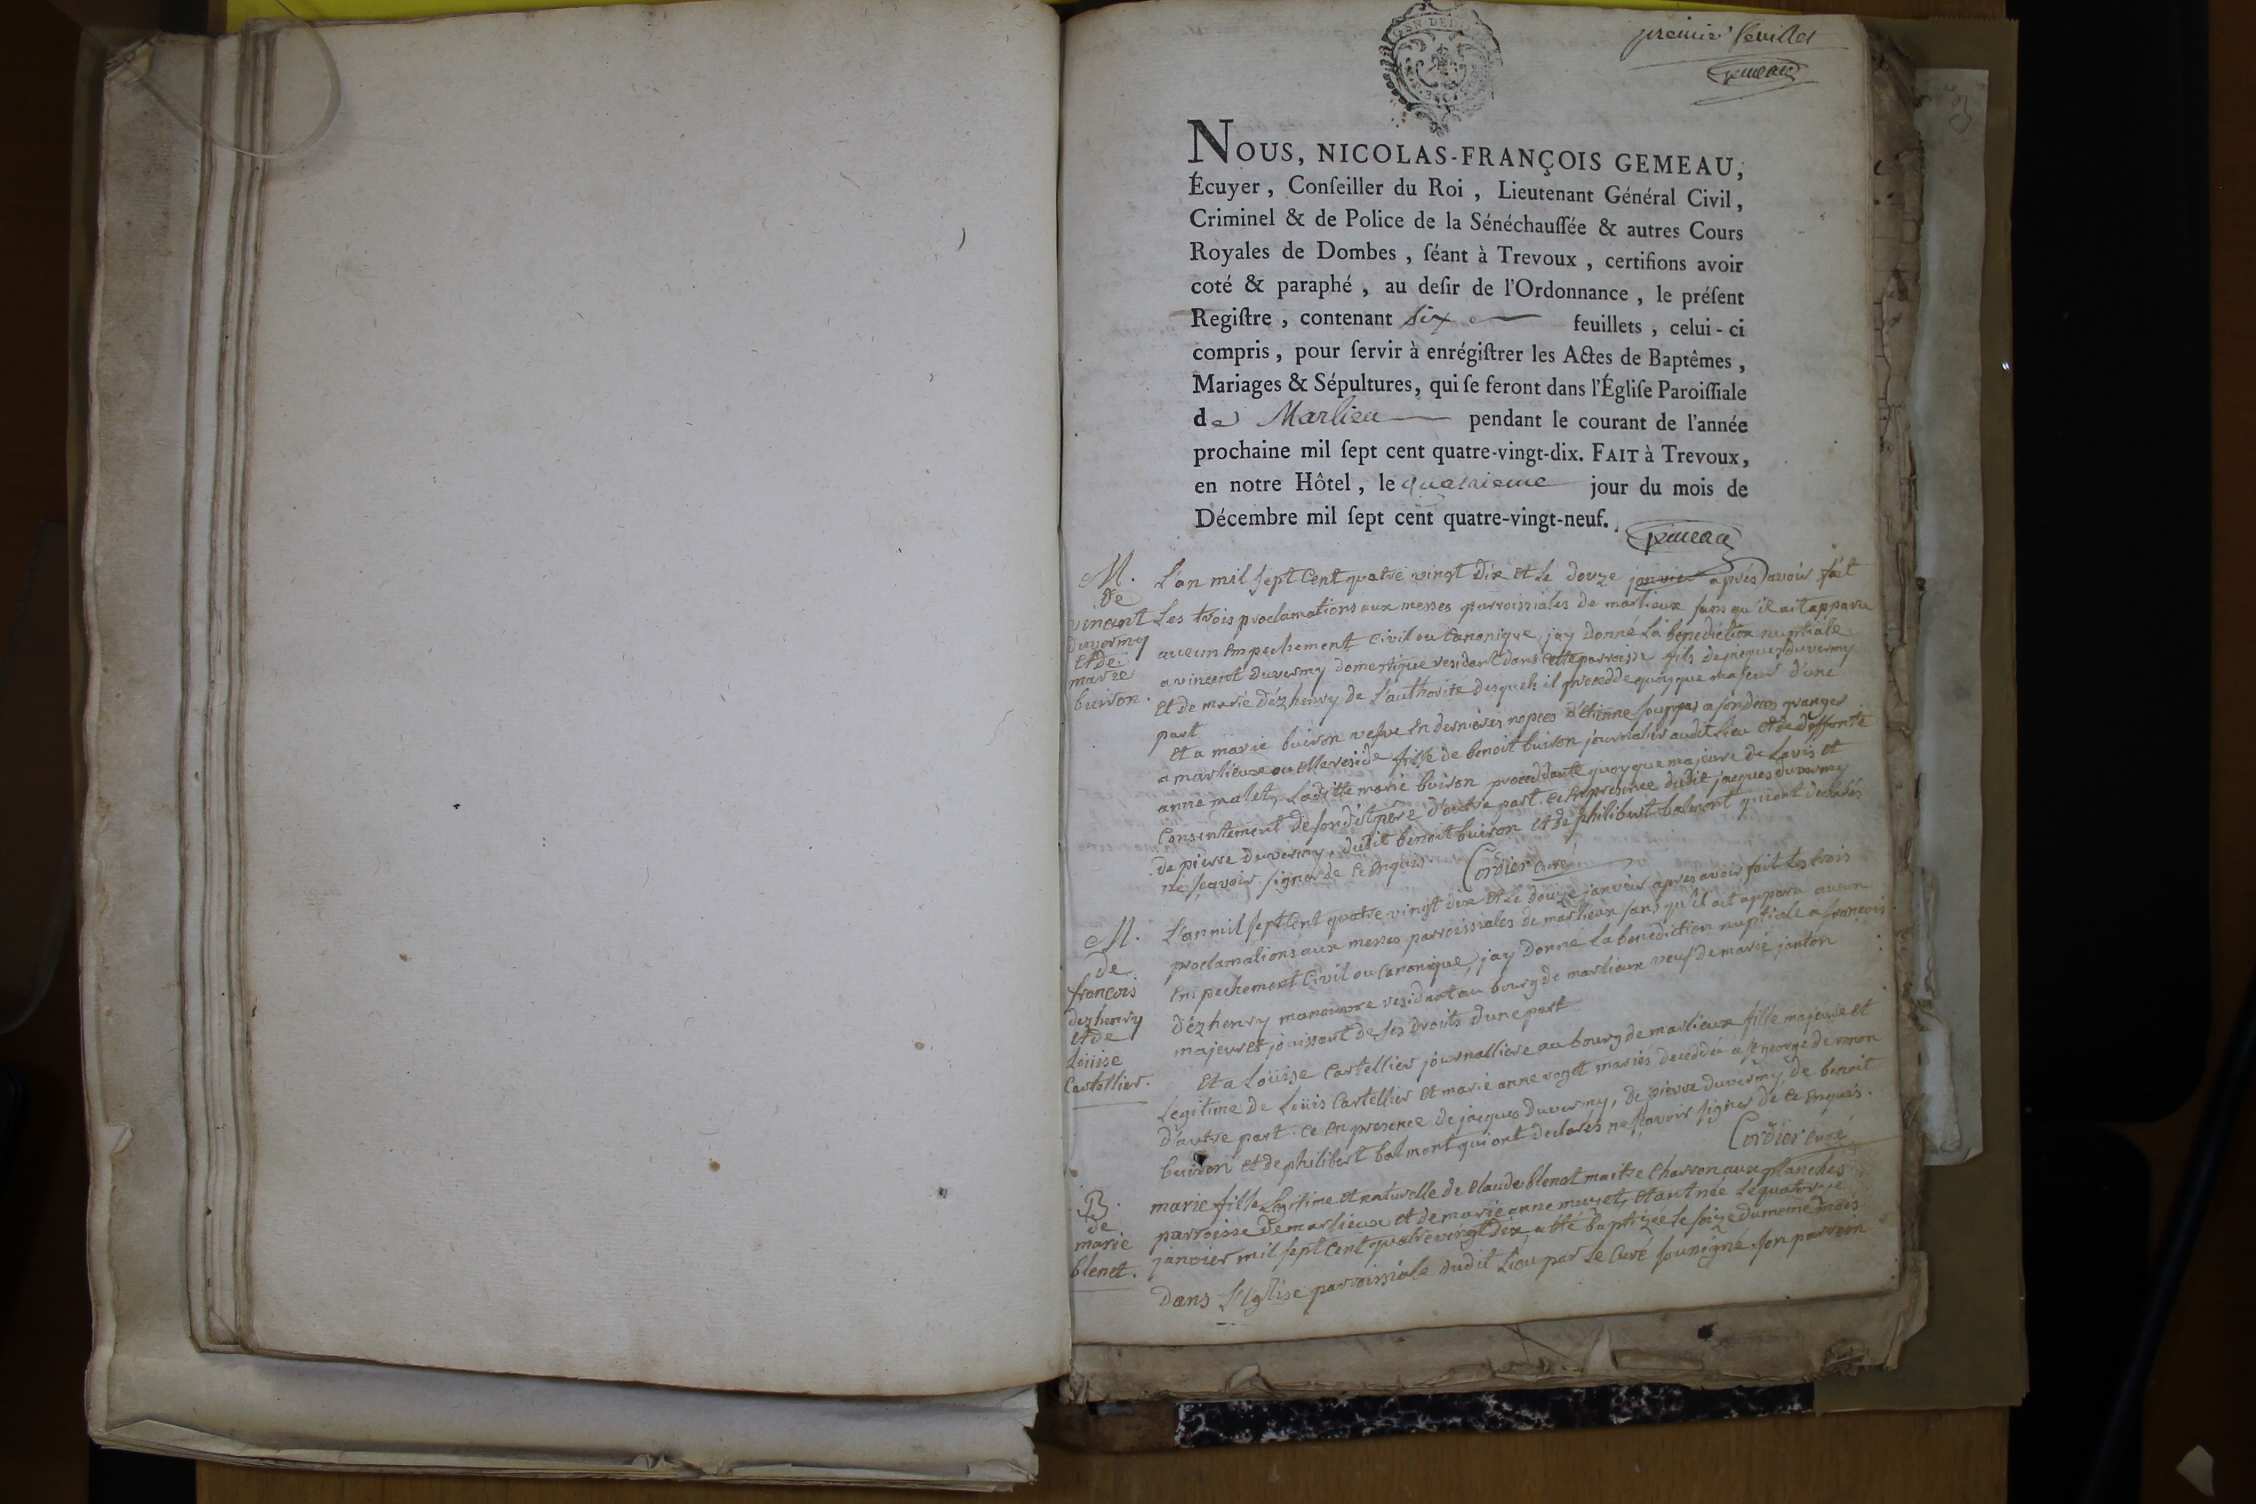 premier feuillet
Gemeau
NOUS, NICOLAS-FRANÇOIS GEMEAU,
Écuyer, Conſeiller du Roi, Lieutenant Général Civil,
Criminel & de Police de la Sénéchauſſée & autres Cours
Royales de Dombes, ſéant à Trevoux, certifions avoir
coté & paraphé, au deſir de l'Ordonnance, le préſent
Regiſtre, contenant six feuillets, celui-ci
compris, pour ſervir à enrégiſtrer les Actes de Baptêmes,
Mariages & Sépultures, qui ſe feront dans l'Égliſe Paroiſſiale
de Marlieu pendant le courant de l'année
prochaine mil ſept cent quatre-vingt-dix. FAIT à Trevoux,
en notre Hôtel, le quatrieme jour du mois de
Décembre mil ſept cent quatre-vingt-neuf.
Gemeau
M.
de
vincent
duvermy
et de
marie
buiron.
L'an mil sept cent quatre vingt dix et le douze janvier après avoir fait
Les trois proclamations aux messes parroissiales de marlieux sans qu'il ait apparu
aucun empechement civil ou canonique, jay donné la benediction nuptiale
a vincent duvermy domestique residant dans cette parroisse fils de jacques duvermy
et de marie dézhenry de l'authorité desquels il procedde quoyque majeur d'une
part
et a marie buiron vefve en dernieres nopces d'etienne
a marlieux ou elle reside fille de benoit buiron journalier audit lieu et de deffunte
anne malet, Laditte marie buiron proceddante quoyque majeure de Lavis et
consentement de sondit pere d'autre part. ce en presence dudit jacques duvermy
de pierre duvermy, dudit benoit buiron et de philibert balmont qui ont declarés
ne sçavoir signer de ce enquis. Cordier curé
M.
de
françois
dezhenry
et de
Loüise
Cartellier.
L'an mil sept cent quatre vingt dix et le douze janvier apres avoir fait les trois
proclamations aux messes parroissiales de marlieux sans qu'il ait apparu aucun
empechement civil ou canonique, jay donné la benediction nuptiale a françois
dézhenry manoeuvre residant au bourg de marlieux veuf de marie janton
majeur et jouissant de ses droits d'une part
Et a Loüise Cartellier journalliere au bourg de marlieux fille majeure et
Legitime de Loüis Cartellier et marie anne roget mariés decedée a St george de renon
d'autre part. ce en presence de jacques duvermy, de pierre duvermy, de benoit
buiron et de philibert balmont qui ont declarés ne sçavoir signer de ce enquis.
Cordier curé
B.
de
marie
blenet.
marie fille legitime et naturelle de claude blenet maitre charron aux planches
parroisse de marlieux et de marie anne muzet, etant née le quatorze
janvier mil sept cent quatre vingt dix, a été baptizée le seize du meme mois
Dans l'eglise parroissiale dudit Lieu par le Curé soussigné. son parrein